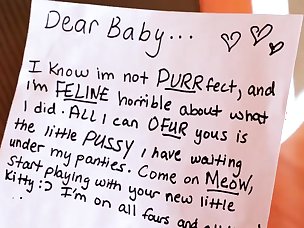 Dear Baby...
I know im not PURRfect, and
i'm FELINE horrible about what
I did. All I can OFUR yous is
the little PUSSY I have waiting
under my panties. Come on Meow,
Start playing with your new little
Kitty :) I'm on all fours and